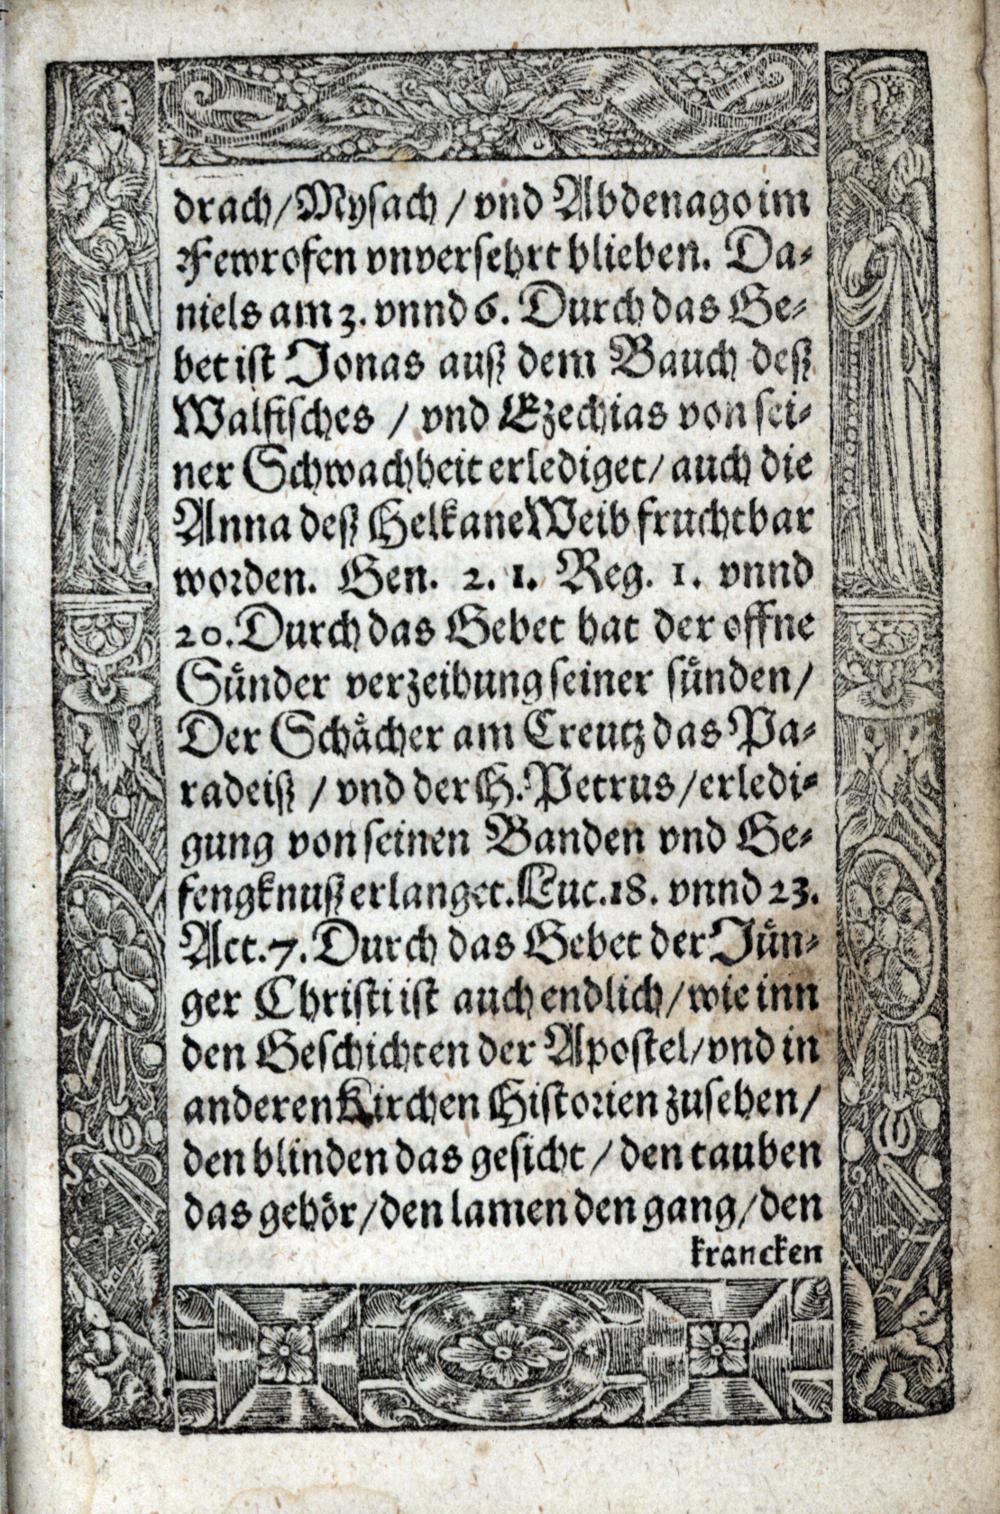 drach/Mysach / vnd Abdenago im
Fewrofen vnversehrt blieben. Da⸗
niels am 3. vnnd 6. Durch das Ge⸗
bet ist Jonas auß dem Bauch deß
Walfisches / vnd Ezechias von sei⸗
ner Schwachheit erlediget/ auch die
Anna deß Helkane Weib fruchtbar
worden. Gen. 2. 1. Reg. 1. vnnd
20. Durch das Gebet hat der offne
Suͤnder verzeihung seiner suͤnden/
Der Schaͤcher am Creutz das Pa⸗
radeiß / vnd der H. Petrus/erledi⸗
gung von seinen Banden vnd Ge⸗
fengknuß erlanget. Luc. 18. vnnd 23.
Act. 7. Durch das Gebet der Juͤn⸗
ger Christi ist auch endlich/wie inn
den Geschichten der Apostel/vnd in
anderen Kirchen Historien zusehen/
den blinden das gesicht / den tauben
das gehoͤr/den lamen den gang/den
krancken